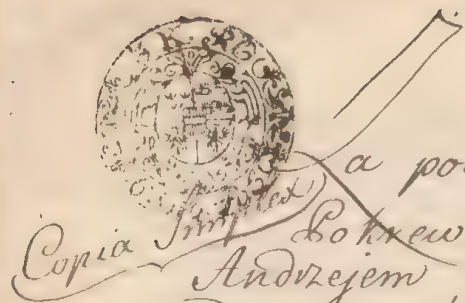 a po
Copia Simplex
Pokrew
Andrzejem